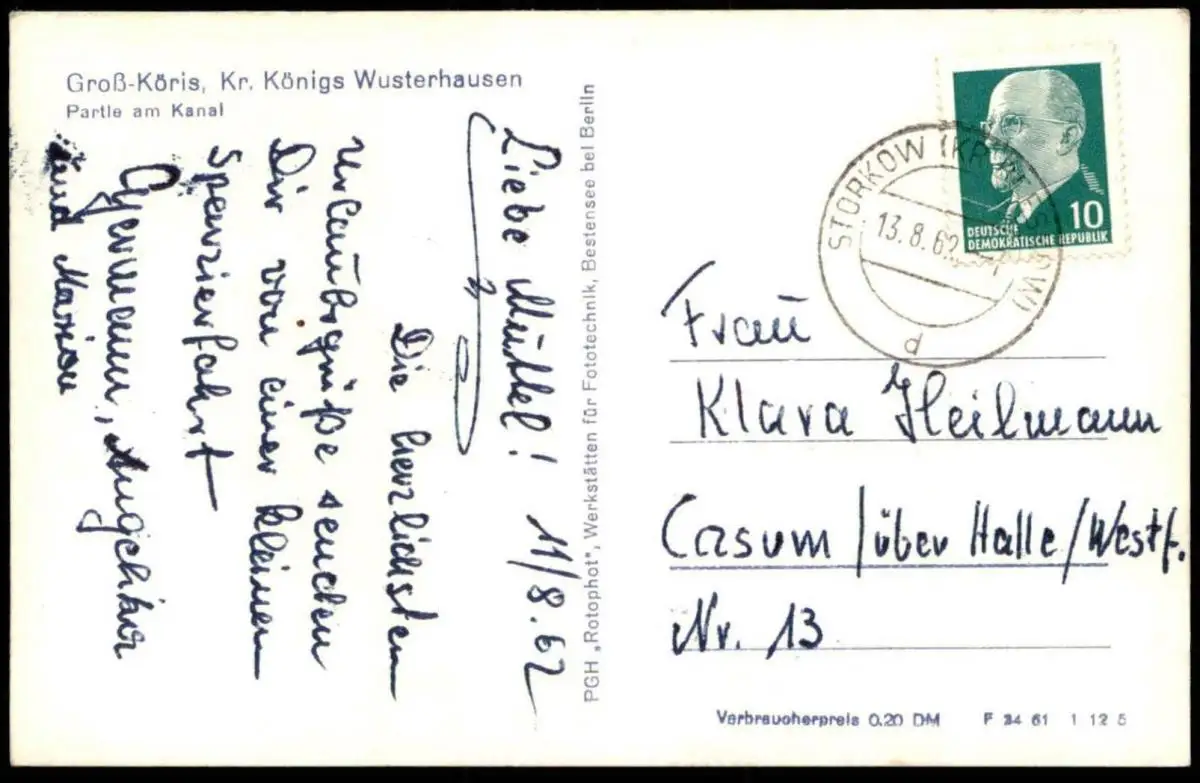 Groß-Köris, Kr. Königs Wusterhausen
Partie am Kanal
Liebe Muttel! 11/8.62
Die herzlichsten
Urlaubsgrüße senden
Dir von einer kleinen
Spazierfahrt
Hermann,
und Marion
PGH „Rotophot", Werkstätten für Fototechnik, Bestensee bei Berlin
DEUTSCHE
DEMOKRATISCHE REPUBLIK
10
STORKOW (KR BEESKOW)
13.8.62
d
Frau
Klara Heilmann
Casum / über Halle/Westf.
Nr. 13
Verbraucherpreis 0.20 DM F 34 61 1 12 5